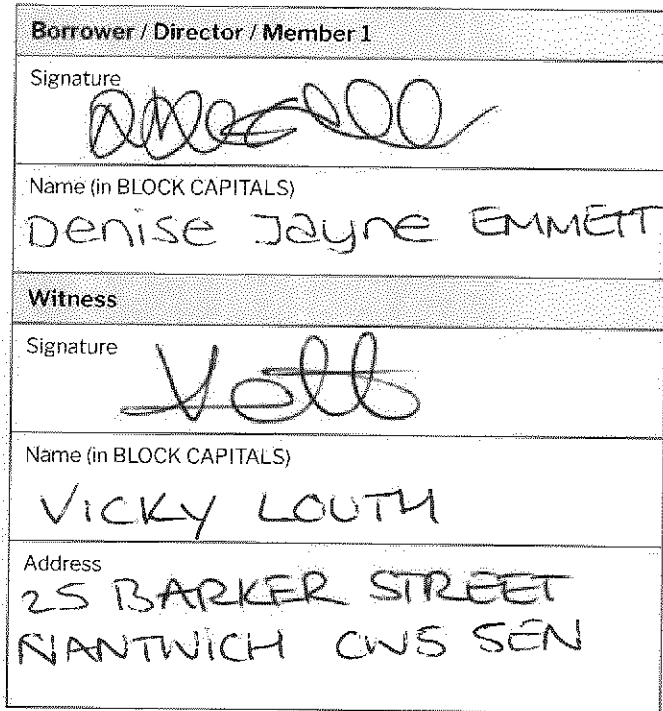 Borrower / Director / Member 1
Signature
Name (in BLOCK CAPITALS)
Denise Jayne EMMETT
Witness
Signature
Name (in BLOCK CAPITALS)
VICKY LOUTH
Address
25 BARKER STREET
NANTWICH CW5 5EN